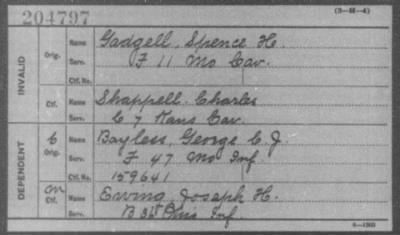 204797
(3-M-4)
INVALID
Orig. Name Gadgell, Spence H.
Serv. F 11 Mo Cav.
Ctf. No.
Ctf. Name Shappell, Charles
Serv. C 7 Kans Cav.
DEPENDENT
C Orig. Name Bayless, George C. J.
Serv. F 47 Mo Inf.
Ctf. No. 159641
Ctf. Name Ewing, Joseph H.
Serv. B Inf.